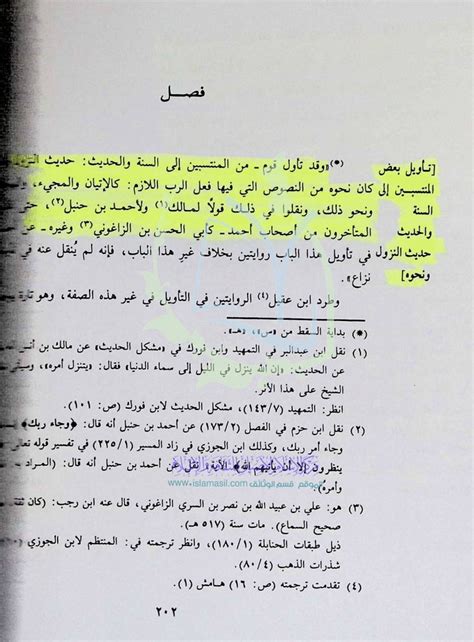 فصـل
[تـأويل بعض
المنتسبين إلى
السنة
والحديث
حديث النزول
ونحوه]
(*)«وقد تأول قوم ـ من المنتسبين إلى السنة والحديث: حديث النزول
كان نحوه من النصوص التي فيها فعل الرب اللازم: كالإتيان والمجيء،
ونحو ذلك، ونقلوا في ذلك قولًا لمالك(١) ولأحمد بن حنبل(٢)،
المتأخرون من أصحاب أحمد ـ كأبي الحسن بن الزاغوني(٣) وغيره ـ عن
في تأويل هذا الباب روايتين بخلاف غير هذا الباب، فإنه لم يُنقل عنه في
نزاع».
وطرد ابن عقيل(٤) الروايتين في التأويل في غير هذه الصفة، وهو تارة
(*) بداية السقط من «س»، «هـ».
(١) نقل ابن عبدالبر في التمهيد وابن فورك في «مشكل الحديث» عن مالك بن
عن الحديث: «إن الله ينزل في الليل إلى سماء الدنيا» فقال: «يتنزل أمره»،
الشيخ على هذا الأثر.
انظر: التمهيد (١٤٣/٧)، مشكل الحديث لابن فورك (ص: ١٠١).
(٢) نقل ابن حزم في الفصل (١٧٣/٢) عن أحمد بن حنبل أنه قال: «وجاء ربك»
وجاء أمر ربك، وكذلك ابن الجوزي في زاد المسير (٢٢٥/١) في تفسير قوله
ينظرون إلا أن يأتيهم الله﴾ الآية، نقل عن أحمد بن حنبل أنه قال: (المراد
وأمره).
الموقع قسم الوثائق www.islamasil.com
(٣) هو: علي بن عبيد الله بن نصر بن السري الزاغوني، قال عنه ابن رجب: (كان
صحيح السماع). مات سنة (٥١٧ هـ).
ذيل طبقات الحنابلة (١٨٠/١)، وانظر ترجمته في: المنتظم لابن الجوزي
شذرات الذهب (٨٠/٤).
(٤) تقدمت ترجمته (ص: ١٦) هامش (١).
٢٠٢